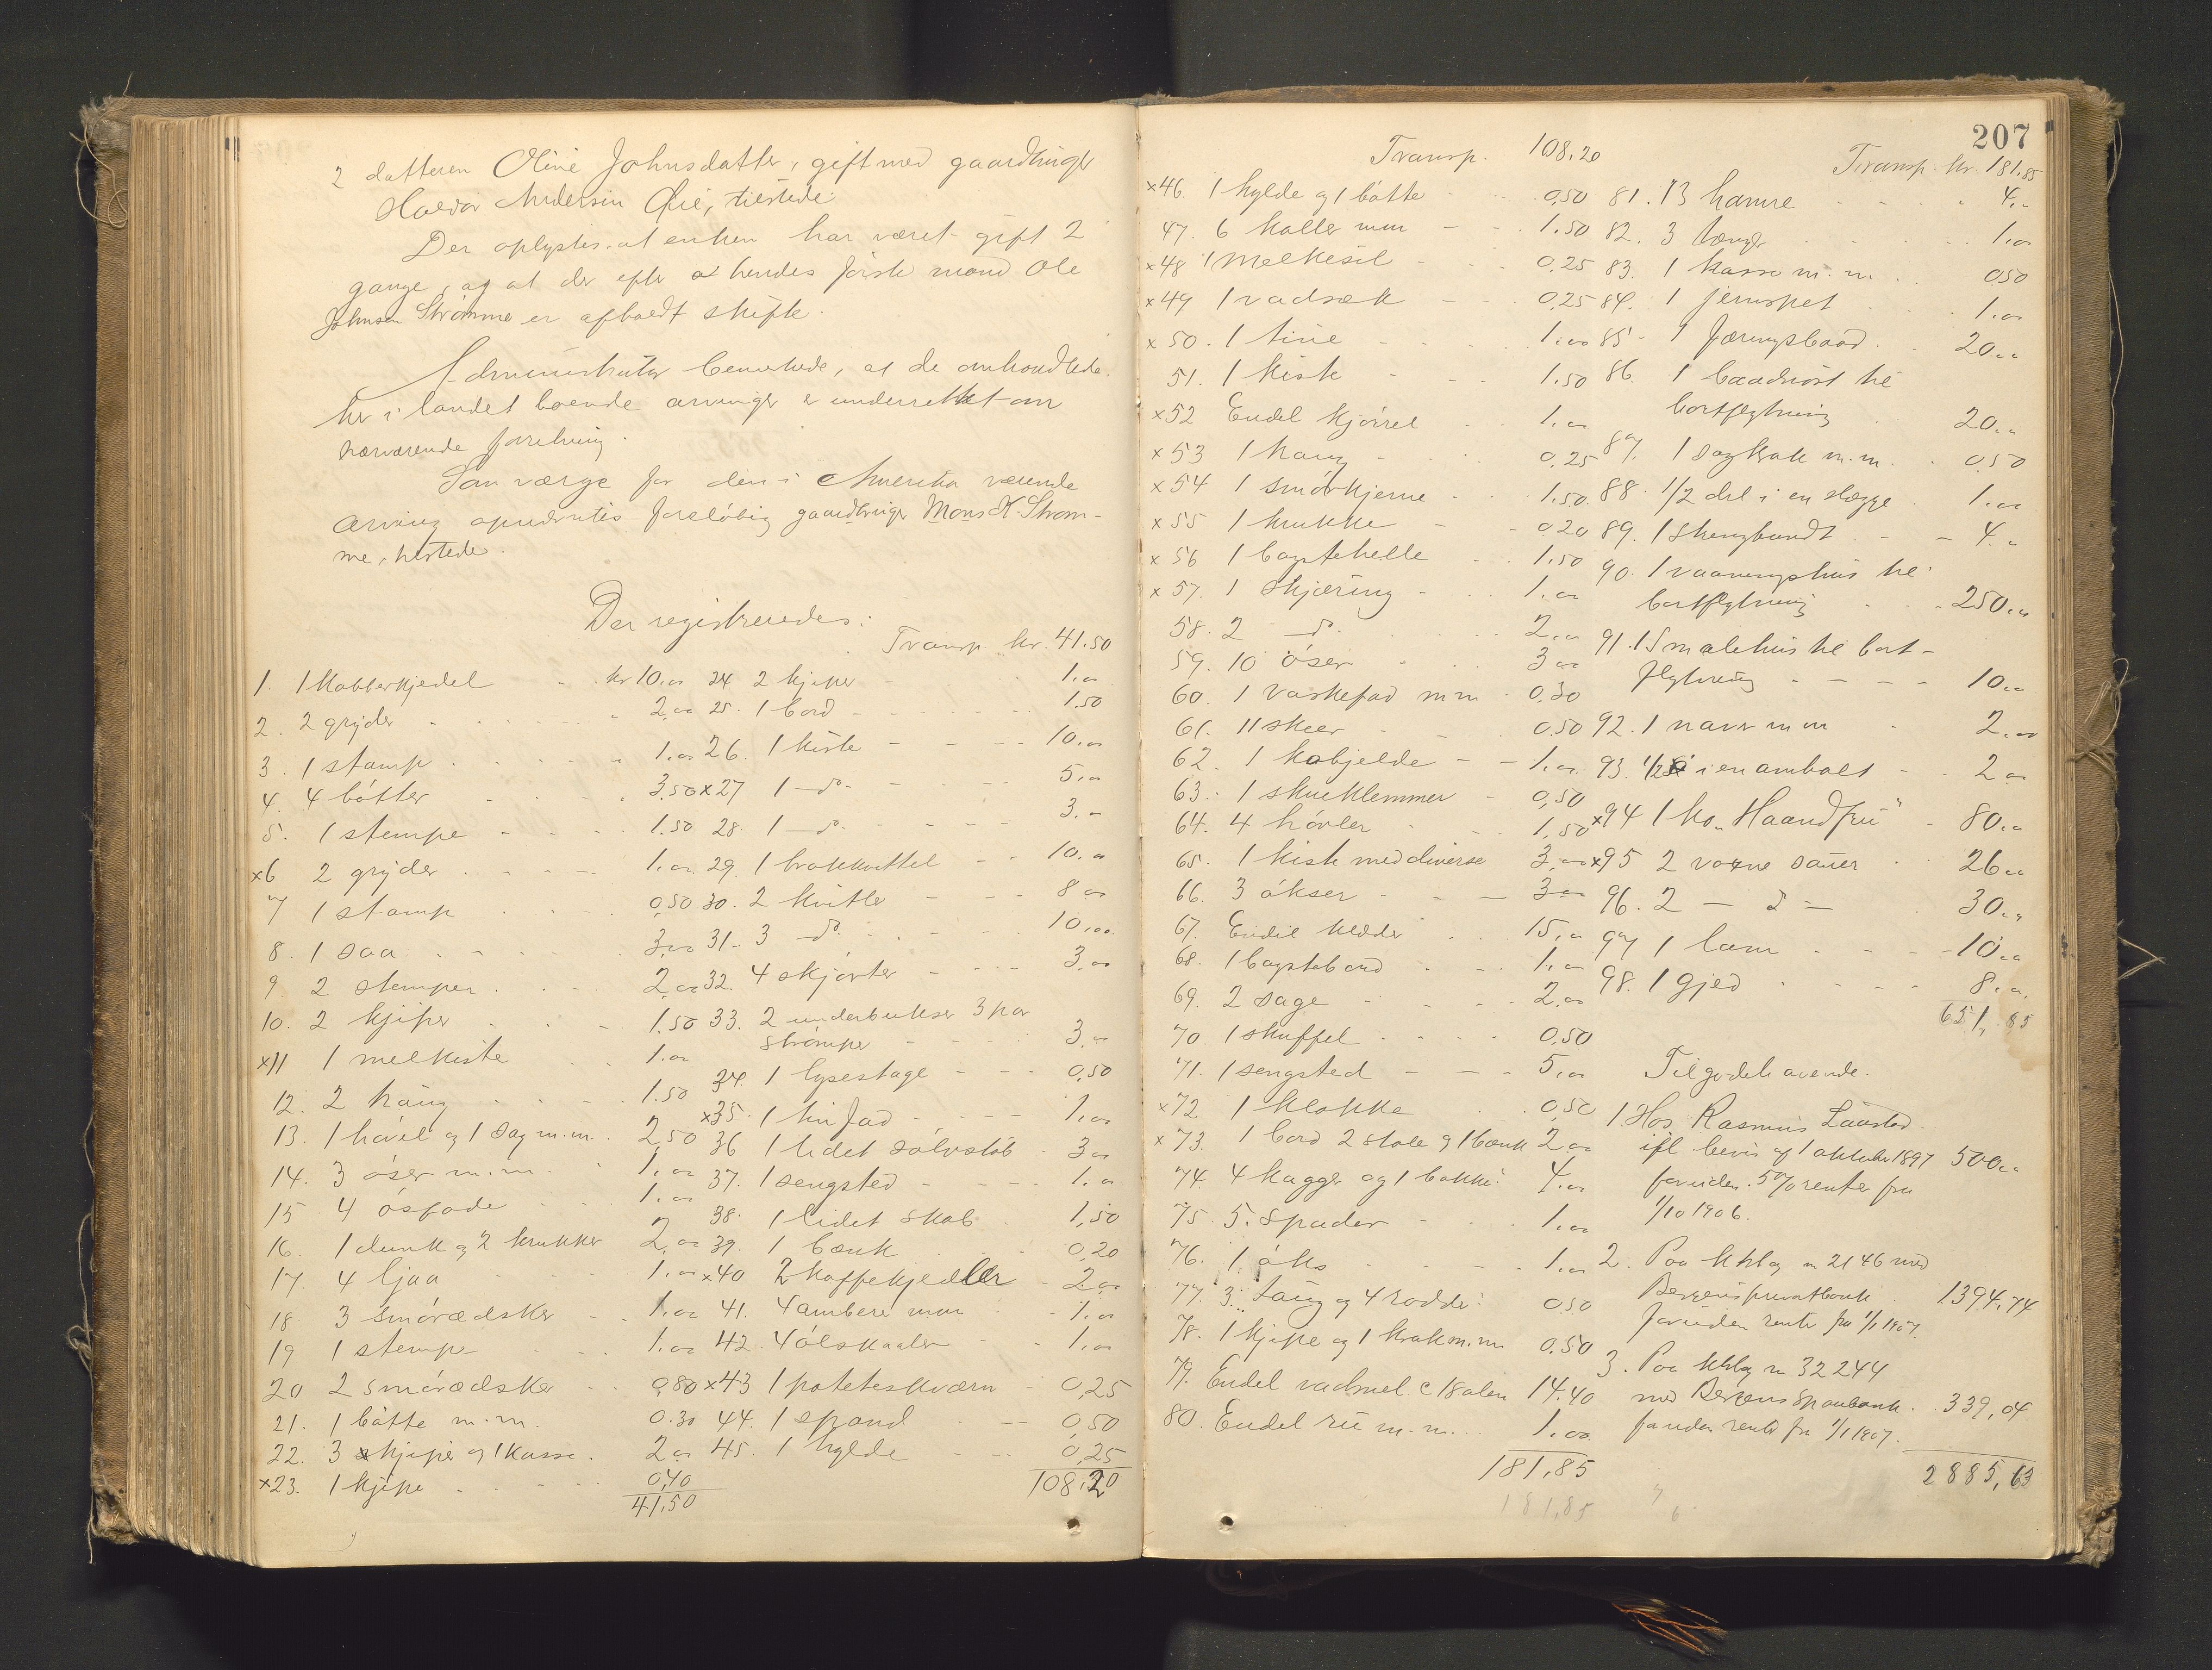 2 datteren Oline Johnsdatter, gift med gaardbruger
Haldor Andersen Øie, tilstede.
Der oplystes at enken har været gift 2
gange, og at der efter at hendes første mand Ole
Johnsen Strømme er afholdt skifte.
Administrator bemerkede, at de omhandlede
her i landet boende arvinger er underrettet om
nærværende forretning.
Som værge for den i Amerika værende
arving opnævntes foreløbig gaardbruger Mons K. Strøm-
me, tilstede.
Der registreredes:
1. 1 kobberkjedel kr 10.00
2. 2 gryder 2,00
3. 1 stamp 1.00
4. 4 bøtter 3.50
5. 1 stempe 1.50
x6 2 gryder 1.00
7 1 stamp 0,50
8. 1 saa 3.00
9. 2 stemper 2,00
10. 2 kjiper 1.50
x11 1 melkiste 1.00
12. 2 haug 1.50
13. 1 høvel og 1 sag m.m. 2,50
14. 3 øser m.m. 1.00
15. 4 øsfade 1.00
16. 1 dunk og 2 krukker 2,00
17. 4 ljaa 1.00
18. 3 smørædsker 1.00
19 1 stempe 1.00
20 2 smørædsker 0,80
21. 1 bøtte m.m. 0.30
22. 3 kjiper og 1 kasse. 2.00
x23. 1 kjipe 0,40
41,50
Transp kr. 41.50
24 2 kjiper 1.00
25. 1 bord 1.50
26. 1 kiste 10.00
x27 1 do. 5.00
28. 1 do. 3.00
29. 1 brokkvittel 10.00
30. 2 kvitler 8 00
31. 3 do. 10,00
32. 4 skjorter 3.00
33. 2 underbukser 3 par
strømper 3,00
34. 1 lysestage 0,50
x35. 1 tinfad 1,00
36 1 lidet sølvstøb 3 00
37. 1 sengsted 1.00
38. 1 lidet skab 1,50
39. 1 bænk 0,20
x40 2 kaffekjedler 2,00
41. 4 ambere m m 1.00
42. 4 ølskaaler 1,00
x43 1 poteteskværn 0,25
44. 1 spand 0,50
45. 1 hylde 0,25
108.20
207
Transp. 108.20
x46. 1 hylde og 1 bøtte 0,50
47. 6 koller m m 1.50
x48 1 melkesil 0.25
x49 1 vadsæk 0,25
x50. 1 tine 1.00
51. 1 kiste 1.50
x52 Endel kjørrel 1.00
x53 1 haug 0.25
x54 1 smørkjerne 1.50
x55 1 krukke 0.20
x56 1 bagstehelle 1.50
x57. 1 skjæring 1.00
58. 2 do. 2.00
59. 10 øser 3 00
60. 1 vaskefad m m 0,30
61. 11 skeer 0.50
62. 1 kobjelde 1.00
63. 1 skueklemmer 0,50
64. 4 høvler 1.50
65. 1 kiste med diverse 3,00
66. 3 økser 3 00
67. Endel klæder 15,00
68. 1 bagstebord 1.00
69. 2 sage 2.00
70. 1 skuffel 0.50
71. 1 sengsted 5,00
x72 1 klokke 0,50
x73. 1 bord 2 stole og 1 bænk 2 00
74. 4 kagger og 1 bakke 4.00
75. 5 spader 1.00
76. 1 øks 1.00
77. 3 taug og 4 rødde 0.50
78. 1 kjipe og 1 krak m.m 0.50
79. Endel vadmel c 18 alen 14.40
80. Endel ru m.m. 1.00
181,85
181,85
Transp. kr. 181,85
81. 13 hamre 4.00
82. 3 tænger 1.00
83. 1 kasse m.m. 0,50
84. 1 jernspet 1.00
85. 1 færingsbaad 20.00
86. 1 baadnøst til
bortflytning 20.00
87. 1 sagkrak m.m. 0,50
88. 1/2 del i en slægge 1.00
89. 1 skrugbandt 4.00
90. 1 vaaningshus til
bortflytning 250.00
91. 1 Smalehus til bort-
flytning 10.00
92. 1 navr m m 2.00
93. 1/2 i en ambolt 2 00
x94 1 ko „Haandfrii" 80.00
x95 2 voxne sauer 26 00
96. 2 — d — 30.00
97 1 lam 10.00
98. 1 gjed 8.00
651,85
Tilgodehavende.
1. Hos Rasmus Laastad
ifl. bevis af 1 oktober 1897 500.00
foruden 5% renter fra
1/10 1906.
2. Paa ktrbog n 2146 med
Bergens privatbank 1394,74
foruden renter fra 1/1 1907.
3. Paa ktrbog n 32244
med Bergens Sparebank 339,04
foruden renter fra 1/1 1907.
2885,63